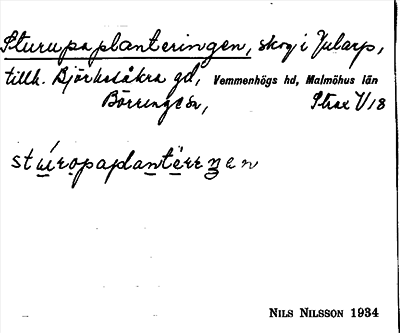 Sturupaplanteringen, skog i Jularp,
tillh. Björkesåkra gd, Vemmenhögs hd, Malmöhus län
Börringe sn,
stúropaplantërrŋen
NILS NILSSON 1934